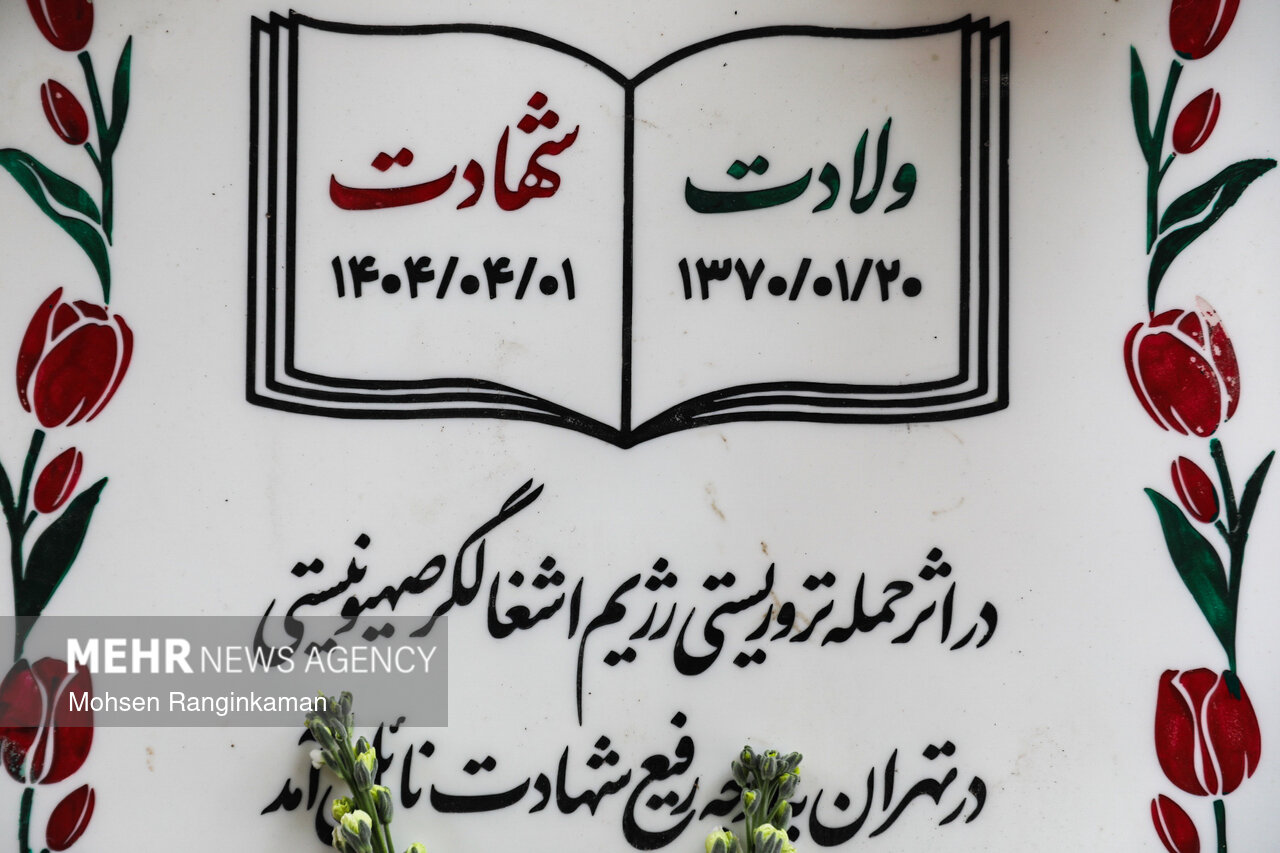 ولادت
۱۳۷۰/۰۱/۲۰
شهادت
۱۴۰۴/۰۴/۰۱
در اثر حمله تروریستی رژیم اشغالگر صهیونیستی
در تهران به درجه رفیع شهادت نائل آمد
MEHR NEWS AGENCY
Mohsen Ranginkaman